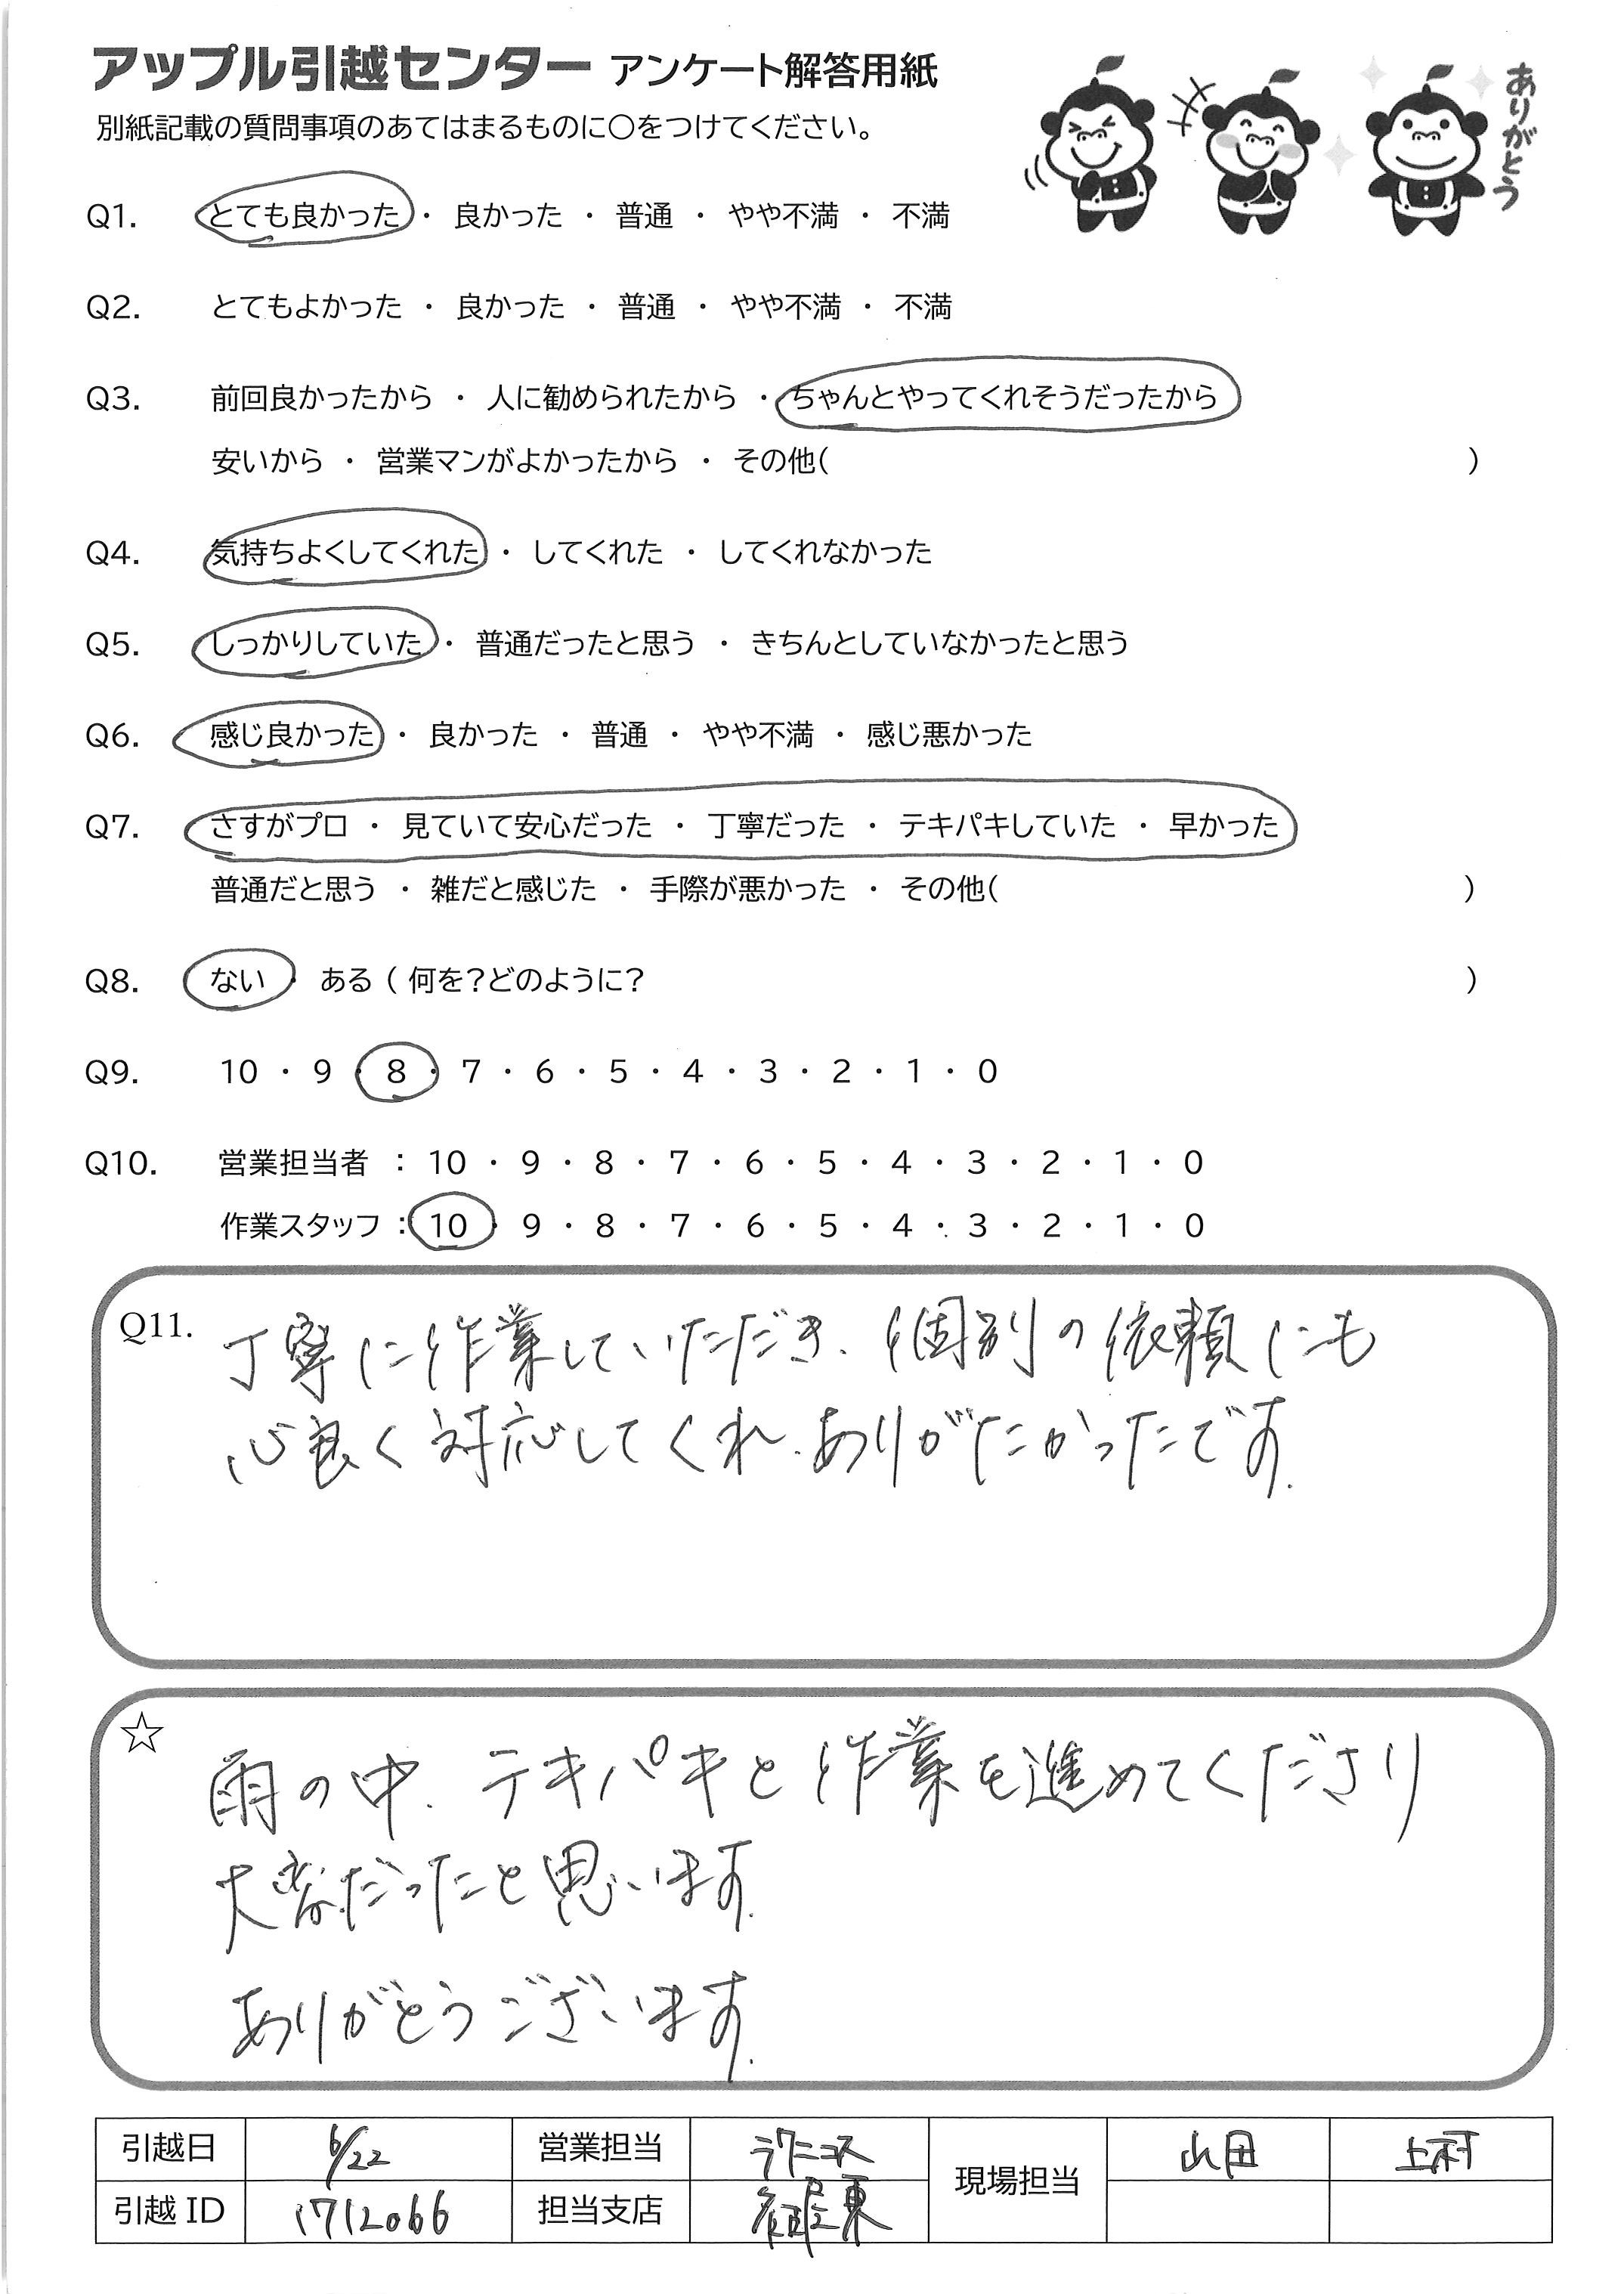 アップル引越センター アンケート解答用紙
別紙記載の質問事項のあてはまるものに○をつけてください。
ありがとう
Q1. とても良かった ・ 良かった ・ 普通 ・ やや不満 ・ 不満
Q2. とてもよかった ・ 良かった ・ 普通 ・ やや不満 ・ 不満
Q3. 前回良かったから ・ 人に勧められたから ・ ちゃんとやってくれそうだったから
安いから ・ 営業マンがよかったから ・ その他( )
Q4. 気持ちよくしてくれた ・ してくれた ・ してくれなかった
Q5. しっかりしていた ・ 普通だったと思う ・ きちんとしていなかったと思う
Q6. 感じ良かった ・ 良かった ・ 普通 ・ やや不満 ・ 感じ悪かった
Q7. さすがプロ ・ 見ていて安心だった ・ 丁寧だった ・ テキパキしていた ・ 早かった
普通だと思う ・ 雑だと感じた ・ 手際が悪かった ・ その他( )
Q8. ない ・ ある ( 何を?どのように? )
Q9. 10 ・ 9 ・ 8 ・ 7 ・ 6 ・ 5 ・ 4 ・ 3 ・ 2 ・ 1 ・ 0
Q10. 営業担当者 : 10 ・ 9 ・ 8 ・ 7 ・ 6 ・ 5 ・ 4 ・ 3 ・ 2 ・ 1 ・ 0
作業スタッフ : 10 ・ 9 ・ 8 ・ 7 ・ 6 ・ 5 ・ 4 ・ 3 ・ 2 ・ 1 ・ 0
Q11. 丁寧に作業していただき、個別の依頼にも
心良く対応してくれ、ありがたかったです.
☆ 雨の中、テキパキと作業を進めてくださり
大変だったと思います.
ありがとうございます.
引越日 6/22 営業担当 ラクニコス 現場担当 山田 上村
引越 ID 1712066 担当支店 名古屋東